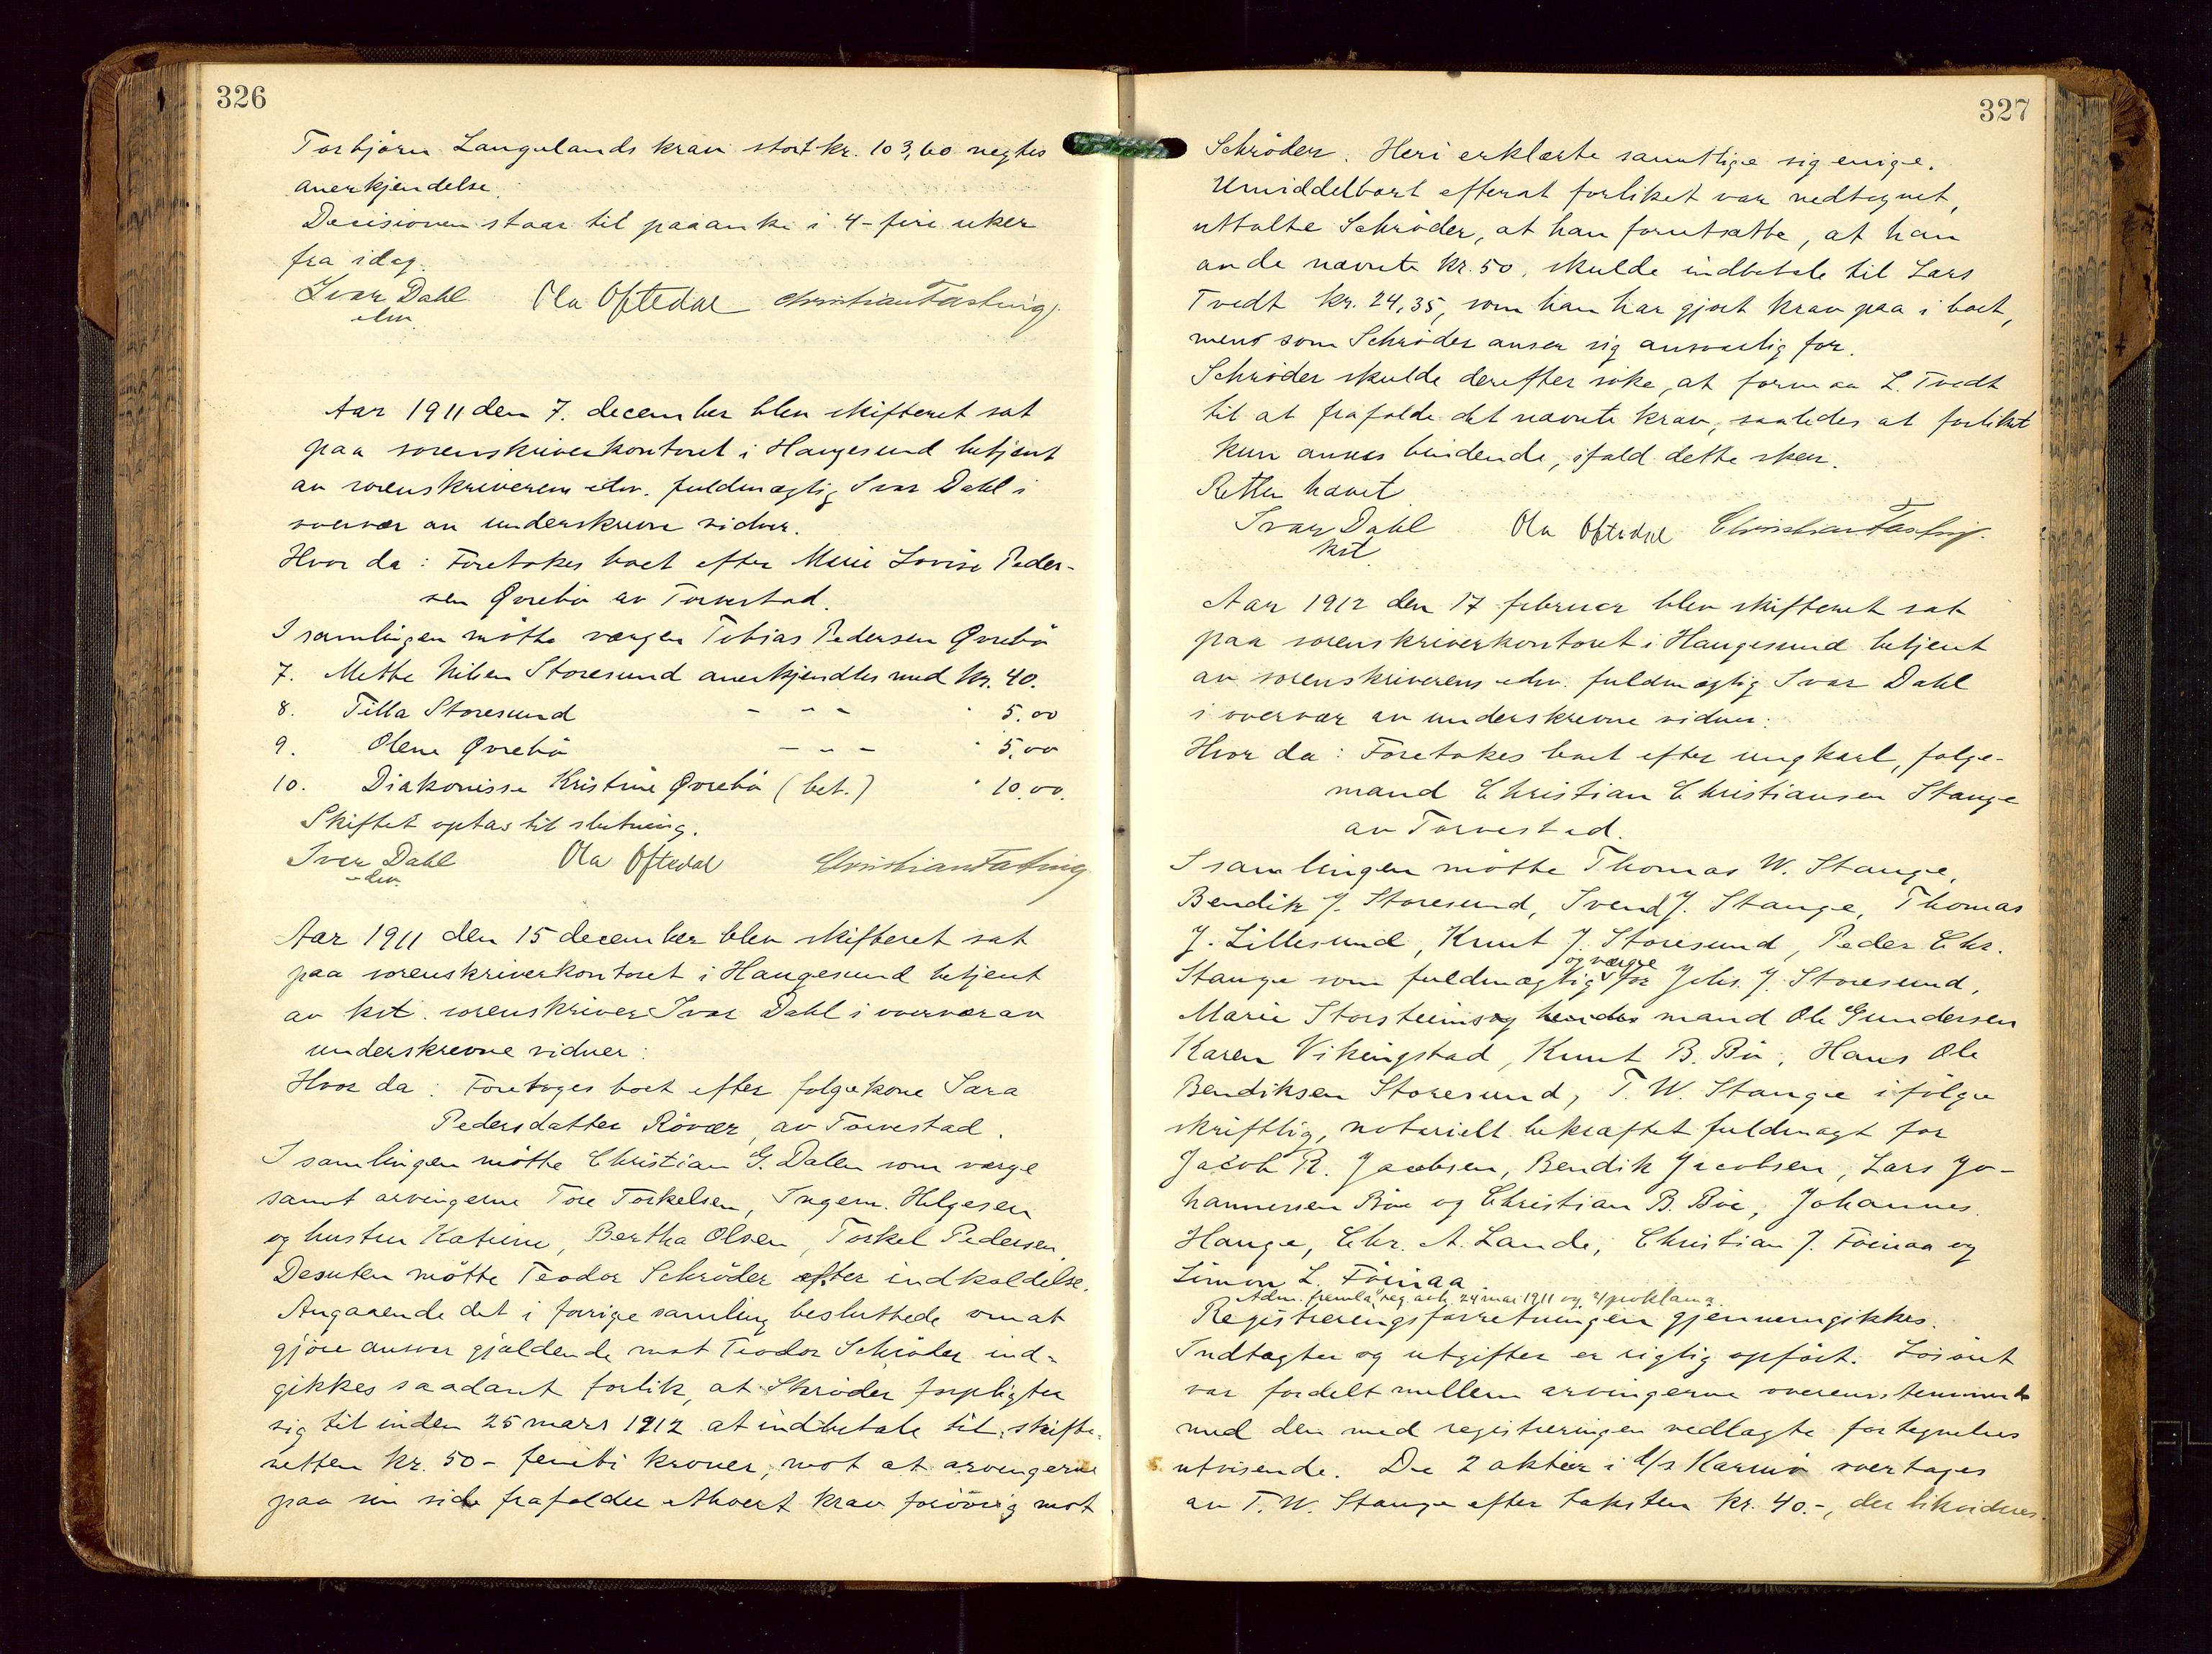 326
Torbjørn Langelands krav stort kr. 103,60 negtes
anerkjendelse.
Decisionen staar til paaanke i 4-fire uker
fra idag.
Ivar Dahl Ola Oftedal Christian Fasting
edv.
Aar 1911 den 7. december blev skifteret sat
paa sorenskriverkontoret i Haugesund betjent
av sorenskriverens edv. fuldmægtig Ivar Dahl i
overvær av underskrevne vidner.
Hvor da: Foretokes boet efter Marie Lovise Peder-
sen Qvrebö av Torvestad.
I samlingen mötte vergen Tobias Pedersen Øvrebö
7. Mette Nilsen Storesund anerkjendtes med kr. 40.
8. Tilla Storesund - - - " 5.00
9. Olene Øvrebö - - - " 5,00
10. Diakonisse Kristine Øvrebö (bet.) " 10.00.
Skiftet optas til slutning.
Ivar Dahl Ola Oftedal Christian Fasting
edv.
Aar 1911 den 15 december blev skifteret sat
paa sorenskriverkontoret i Haugesund betjent
av kst. sorenskriver Ivar Dahl i overvær av
underskrevne vidner:
Hvor da: Foretoges boet efter folgekone Sara
Pedersdatter Rövær, av Torvestad.
I samlingen mötte Christian G. Dalen som verge
samt arvingerne Tore Torkelsen, Ingem. Helgesen
og hustru Katrine, Bertha Olsen, Torkel Pedersen.
Desuten mötte Teodor Schröder efter indkaldelse.
Angaaende det i forrige samling besluttede om at
gjøre ansvar gjældende mot Teodor Schröder ind-
gikkes saadant forlik, at Skröder forpligter
sig til inden 25 mars 1912 at indbetale til skifte-
retten kr. 50 - femti kroner, mot at arvingerne
paa sin side frafalder ethvert krav forövrig mot
327
Schröder. Heri erklærte samtlige sig enige.
Umiddelbart efterat forliket var nedtegnet,
uttalte Schröder, at han forutsatte, at han
av de nævnte kr. 50, skulde indbetale til Lars
Tvedt kr. 24,35, som han har gjort krav paa i boet,
mens som Schröder anser sig ansvarlig for.
Schröder skulde derefter söke, at formaa L. Tvedt
til at frafalde det nævnte krav, saaledes at forliket
kun ansees bindende, ifald dette sker.
Retten hævet
Ivar Dahl Ola Oftedal Christian Fasting.
kst.
Aar 1912 den 17 februar blev skifteret sat
paa sorenskriverkontoret i Haugesund betjent
av sorenskriverens edv. fuldmægtig Ivar Dahl
i overvær av underskrevne vidner:
Hvor da: Foretokes boet efter ungkarl, følge-
mand Christian Christiansen Stange
av Torvestad.
I samlingen mötte Thomas W. Stange,
Bendik J. Storesund, Svend J. Stange, Thomas
J. Lillesund, Knut J. Storesund, Peder Chr.
og værge
Stange som fuldmægtig for Johs. J. Storesund,
Marie Storsteins og hendes mand Ole Gundersen
Karen Vikingstad, Knut B. Bö, Hans Ole
Bendiksen Storesund, T. W. Stange ifölge
skriftlig, notarielt bekræftet fuldmagt for
Jacob R. Jacobsen, Bendik Jacobsen, Lars Jo-
hannessen Böe og Christian B. Böe, Johannes
Hauge, Chr. A. Lande, Christian J. Föinaa og
Simon L. Föinaa.
Adm. fremla reg. avh. 24 mai 1911 og proklama.
Registreringsforretningen gjennemgikkes.
Indtægter og utgifter er rigtig opfört. Lösöret
var fordelt mellem arvingerne overensstemmende
med den med registreringen vedlagte fortegnelses
utvisende. De 2 aktier i A/s Karmö overtages
av T. W. Stange efter taksten kr. 40.-, der likvideres.